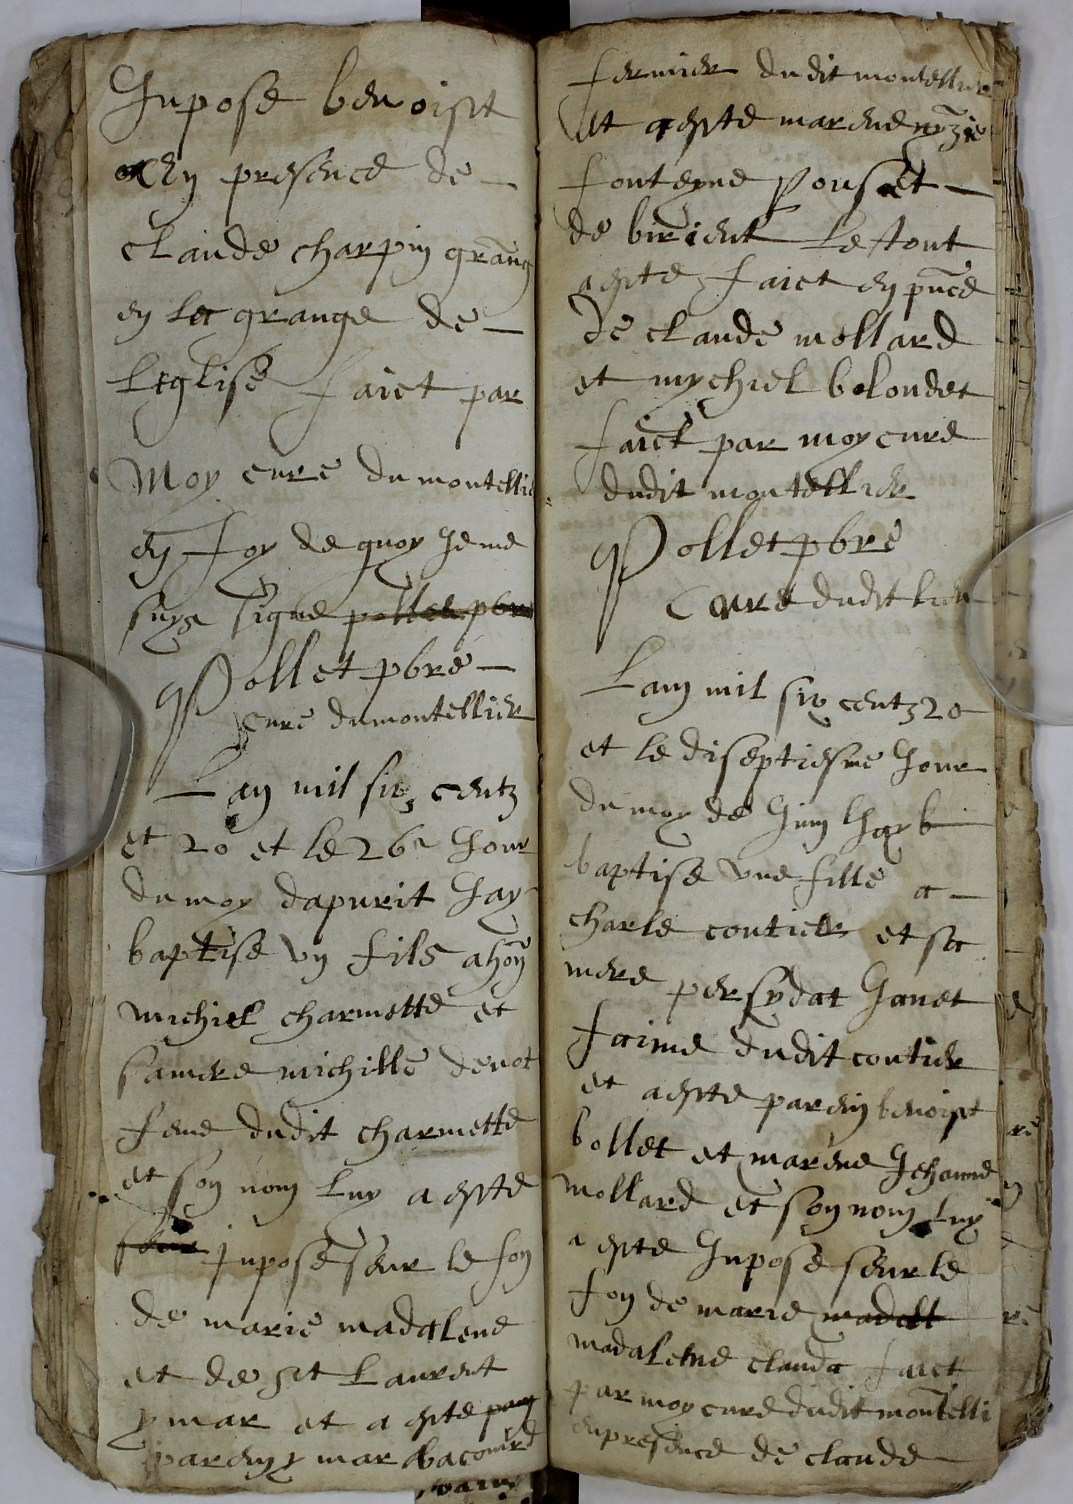 Inposé benoist
en presence de
claude charpin grang
en la grange de
leglise faict par
Moy cure du montellie
en foy de quoy Je me
suys signe pollet pbre
Pollet pbre
cure du montellier
Lan mil six centz
et 20 et le 26e Jour
du moy dapvril Jay
baptise un fils a hon
michiel charmette et
sa mere michille devot
feme dudit charmette
et son nom luy a este
inposé seur le fon
de marie madalene
et de st laurent
ymar et a este
parein ymar bacouird
fermier dudit montellier
et a este marene
fonteyne Pouset
de birient le tout
a este faict en pnce
de claude mollard
et mychiel belondet
faict par moy cure
dudit montellier
Pollet pbre
Cure dudit lieu
Lan mil six centz 20
et le diseptiesme Jour
du moy de Juin
baptise une fille a
charle coutier et sa
mere Janet
faime dudit coutier
et a este parein benoist
bollet et marene Jehanne
mollard et son nom luy
a este Inposé seur le
fon de marie madell
madalene clauda faict
par moy cure dudit montelli
en presence de claude